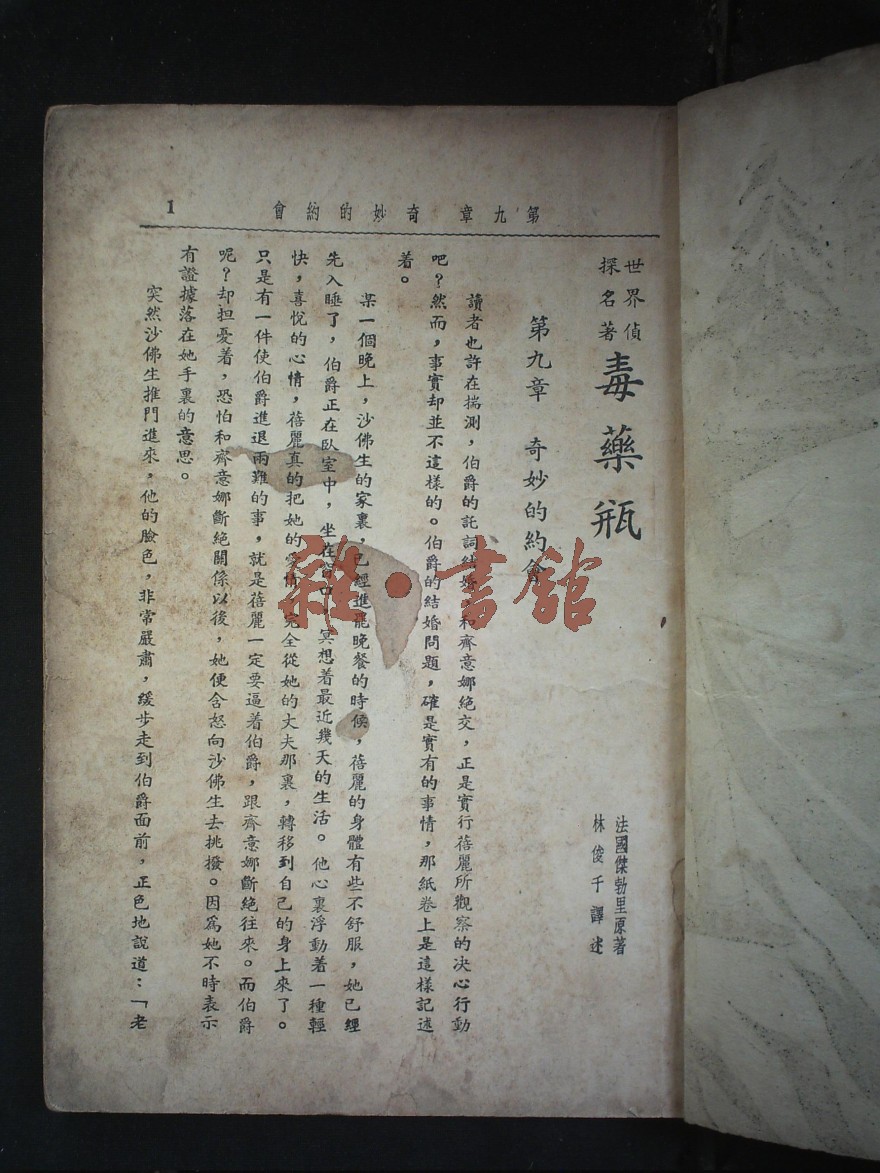 第九章 奇妙的約會 1
世界偵
探名著
毒藥瓶
法國傑勃里原著
林俊千譯述
第九章 奇妙的約會
讀者也許在揣測，伯爵的託詞結婚，和齊意娜絕交，正是實行蓓麗所觀察的决心行動
吧？然而，事實却並不這樣的。伯爵的結婚問題，確是實有的事情，那紙卷上是這樣記述
着。
某一個晚上，沙佛生的家裏，已經進罷晚餐的時候，蓓麗的身體有些不舒服，她已經
先入睡了，伯爵正在臥室中，坐在窗口，冥想着最近幾天的生活。他心裏浮動着一種輕
快，喜悅的心情，蓓麗真的把她的愛情，完全從她的丈夫那裏，轉移到自己的身上來了。
只是有一件使伯爵進退兩難的事，就是蓓麗一定要逼着伯爵，跟齊意娜斷絕往來。而伯爵
呢？却担憂着，恐怕和齊意娜斷絕關係以後，她便含怒向沙佛生去挑撥。因爲她不時表示
有證據落在她手裏的意思。
突然沙佛生推門進來，他的臉色，非常嚴肅，緩步走到伯爵面前，正色地說道：「老
雜·書館